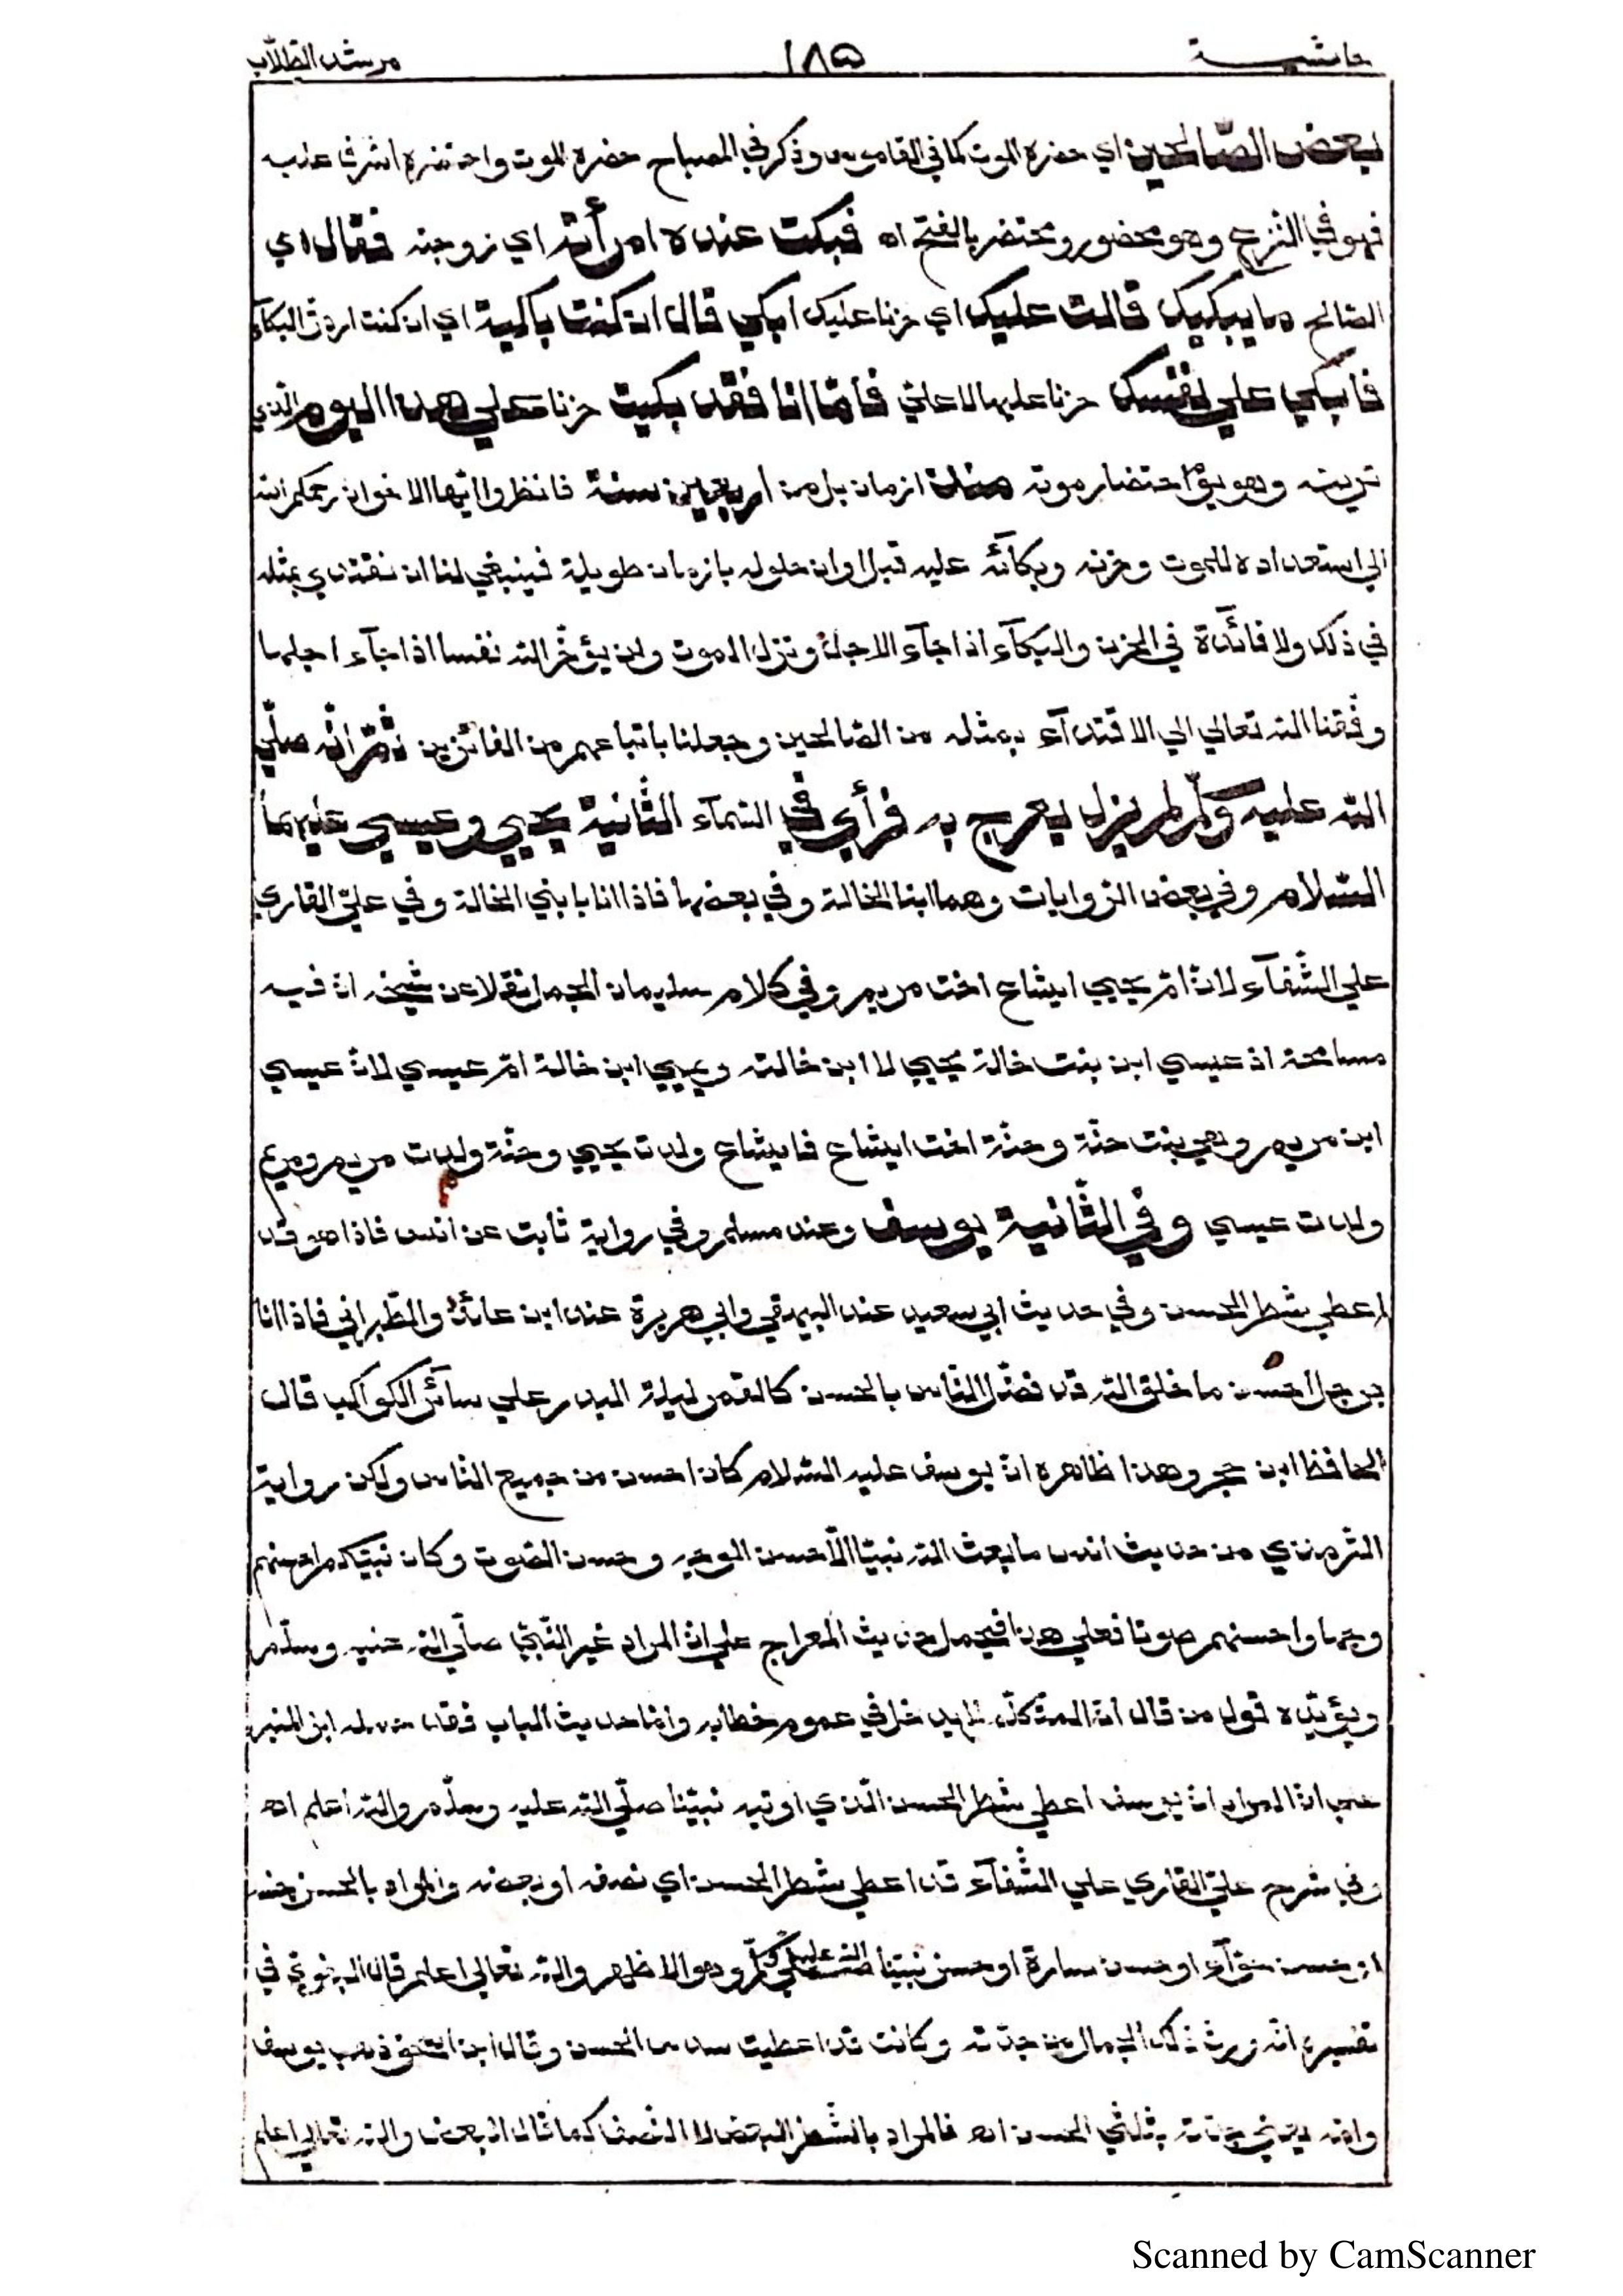 حاشية ١٨٥ مرشد الطلّاب
لبعض الصّالحين اي حضره الموت كما في القاموس وذكر في المصباح حضره الموت واحتضره اشرف عليه
فهو في النزع وهو محضور ومحتضر بالفتح اه فبكت عنده امرأته اي زوجته فقال اي
الصّالح ما يبكيك قالت عليك اي حزنا عليك ابكي قال ان كنت باكية اي ان كنت اردت البكآء
فابكي علي نفسك حزنا عليها لا عليّ فأمّا انا فقد بكيت حزنا علي هذا اليوم الذي
ترينه وهو يوم احتضار موته منذ ازمان بل من اربعين سنة فانظروا ايّها الاخوان رحمكم الله
الي استعداده للموت وحزنه وبكآئه عليه قبل اوان حلوله بازمان طويلة فينبغي لنا ان نقتدي بمثله
في ذلك ولا فائدة في الحزن والبكآء اذا جآء الاجل ونزل الموت ولن يؤخّر الله نفسا اذا جآء اجلها
وفّقنا الله تعالي الي الاقتدآء بمثله من الصّالحين وجعلنا باتباعهم من الفائزين ثمّ انّه صلّي
الله عليه وسلّم لم يزل يعرج به فرأي في السّمآء الثّانية يحيي وعيسي عليهما
السّلام وفي بعض الرّوايات وهما ابنا الخالة وفي بعضها فاذا انا بابني الخالة وفي عليّ القاري
علي الشّفآء لانّ امّ يحيي ايشاع اخت مريم وفي كلام سليمان الجمل نقلا عن شيخه انّ فيه
مسامحة اذ عيسي ابن بنت خالة يحيي لا ابن خالته ويحيي ابن خالة امّ عيسي لانّ عيسي
ابن مريم وهي بنت حنّة وحنّة اخت ايشاع فايشاع ولدت يحيي وحنّة ولدت مريم ومريم
ولدت عيسي وفي الثّانية يوسف وعند مسلم وفي رواية ثابت عن انس فاذا هو قد
اعطي شطر الحسن وفي حديث ابي سعيد عند البيهقي وابي هريرة عند ابن عائذ والطّبراني فاذا انا
برجل احسن ما خلق الله قد فضّل النّاس بالحسن كالقمر ليلة البدر علي سائر الكواكب قال
الحافظ ابن حجر وهذا ظاهره انّ يوسف عليه السّلام كان احسن من جميع النّاس ولكن رواية
التّرمذي من حديث انس ما بعث الله نبيّا الّا حسن الوجه وحسن الصّوت وكان نبيّكم احسنهم
وجها واحسنهم صوتا فعلي هذا فيحمل حديث المعراج علي انّ المراد غير النّبيّ صلّي الله عليه وسلّم
ويؤيّده قول من قال انّ المتكلّم لا يدخل في عموم خطابه وامّا حديث الباب فقد حمله ابن المنير
علي انّ المراد انّ يوسف اعطي شطر الحسن الّذي اوتيه نبيّنا صلّي الله عليه وسلّم والله اعلم اه
وفي شرح عليّ القاري علي الشّفآء قد اعطي شطر الحسن اي نصفه او بعضه والمراد بالحسن جنسه
او حسن حوّآء او حسن سارة او حسن نبيّنا صلّي الله عليه وسلّم وهو الاظهر والله تعالي اعلم قال البغويّ في
تفسيره انّه ورث ذلك الجمال من جدّته وكانت قد اعطيت سدس الحسن وقال ابن اسحق ذهب يوسف
وامّه يعني جدّته بثلثي الحسن اه فالمراد بالشّطر البعض لا النّصف كما قال البعض والله تعالي اعلم
Scanned by CamScanner